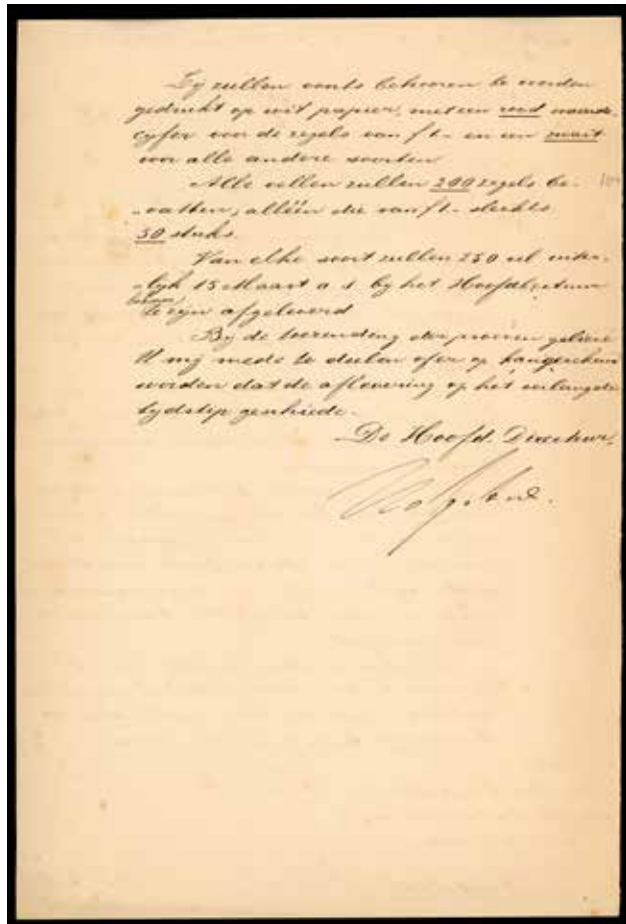 Zy zullen voorts behooren te worden
gedrukt op wit papier, met een rood waarde-
cyfer voor de zegels van ƒ1.- en een zwart
voor alle andere soorten
Alle vellen zullen 200 zegels be-
-vatten, alléén die van ƒ1.- slechts
50 stuks.
Van elke soort zullen 250 vel uiter-
-lyk 15 Maart a s by het Hoofdbestuur
te zyn afgeleverd
By de toezending der proeven gelieve
U my mede te deelen of er op kan gerekend
worden dat de aflevering op het verlangde
tydstip geschiede.
De Hoofd. Directeur,